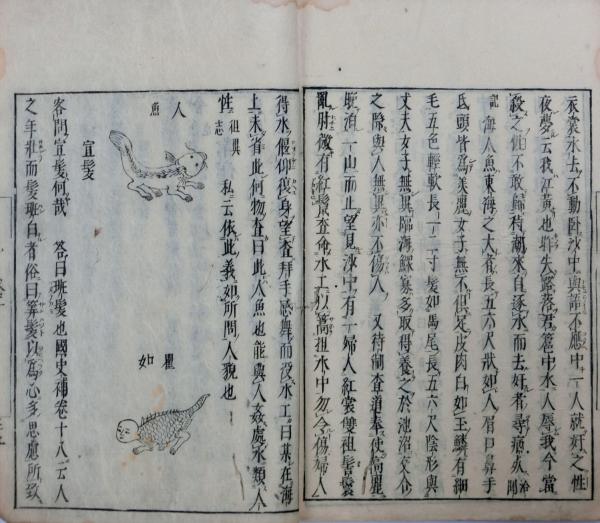 衣裳水去不動臥沙中與語不應中一人就奸之性
夜夢云我江黃也昨失路落君篭中水人辱我今當
殺之怕不敢歸待潮來自逐水而去奸者尋病死 洽聞
記 海人魚東海之大者長五六尺狀如人眉目鼻手
爪頭皆為美麗女子無不俱足皮肉白如玉鱗有細
毛五色輕軟長一二寸髮如馬尾長五六尺陰形與
丈夫女子無異臨海鰥寡多取得養之於池沼交合
之際與人無異亦不傷人 又待制查道奉使高麗
晚泊一山而止望見沙中有一婦人紅裳雙袒髻鬟
亂肘微有紅鬣查命水工以篙扭水中勿令傷婦人
得水偃仰復身望查拜手感舞而沒水工曰某在海
上未省此何物查曰此人魚也能與人姦處水類人
性 祖異志 私云依此義如所問人貌也
人魚
瞿如
宣髮
客問宣髮何哉 答曰班髮也國史補卷十八云人
之年壯而髮班白者俗曰筭髮以為心多思慮所致